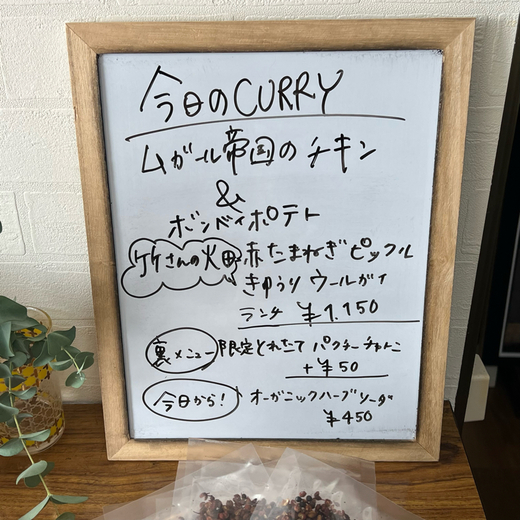 今日のCURRY
ムガール帝国のチキン
&
ボンベイポテト
ケイさんの火田 赤たまねぎピックル
きゅうりウールガイ
ランチ ¥1.150
裏メニュー 限定とれたて パクチーチャトニ
+¥50
今日から! オーガニックハーブソーダ
¥450